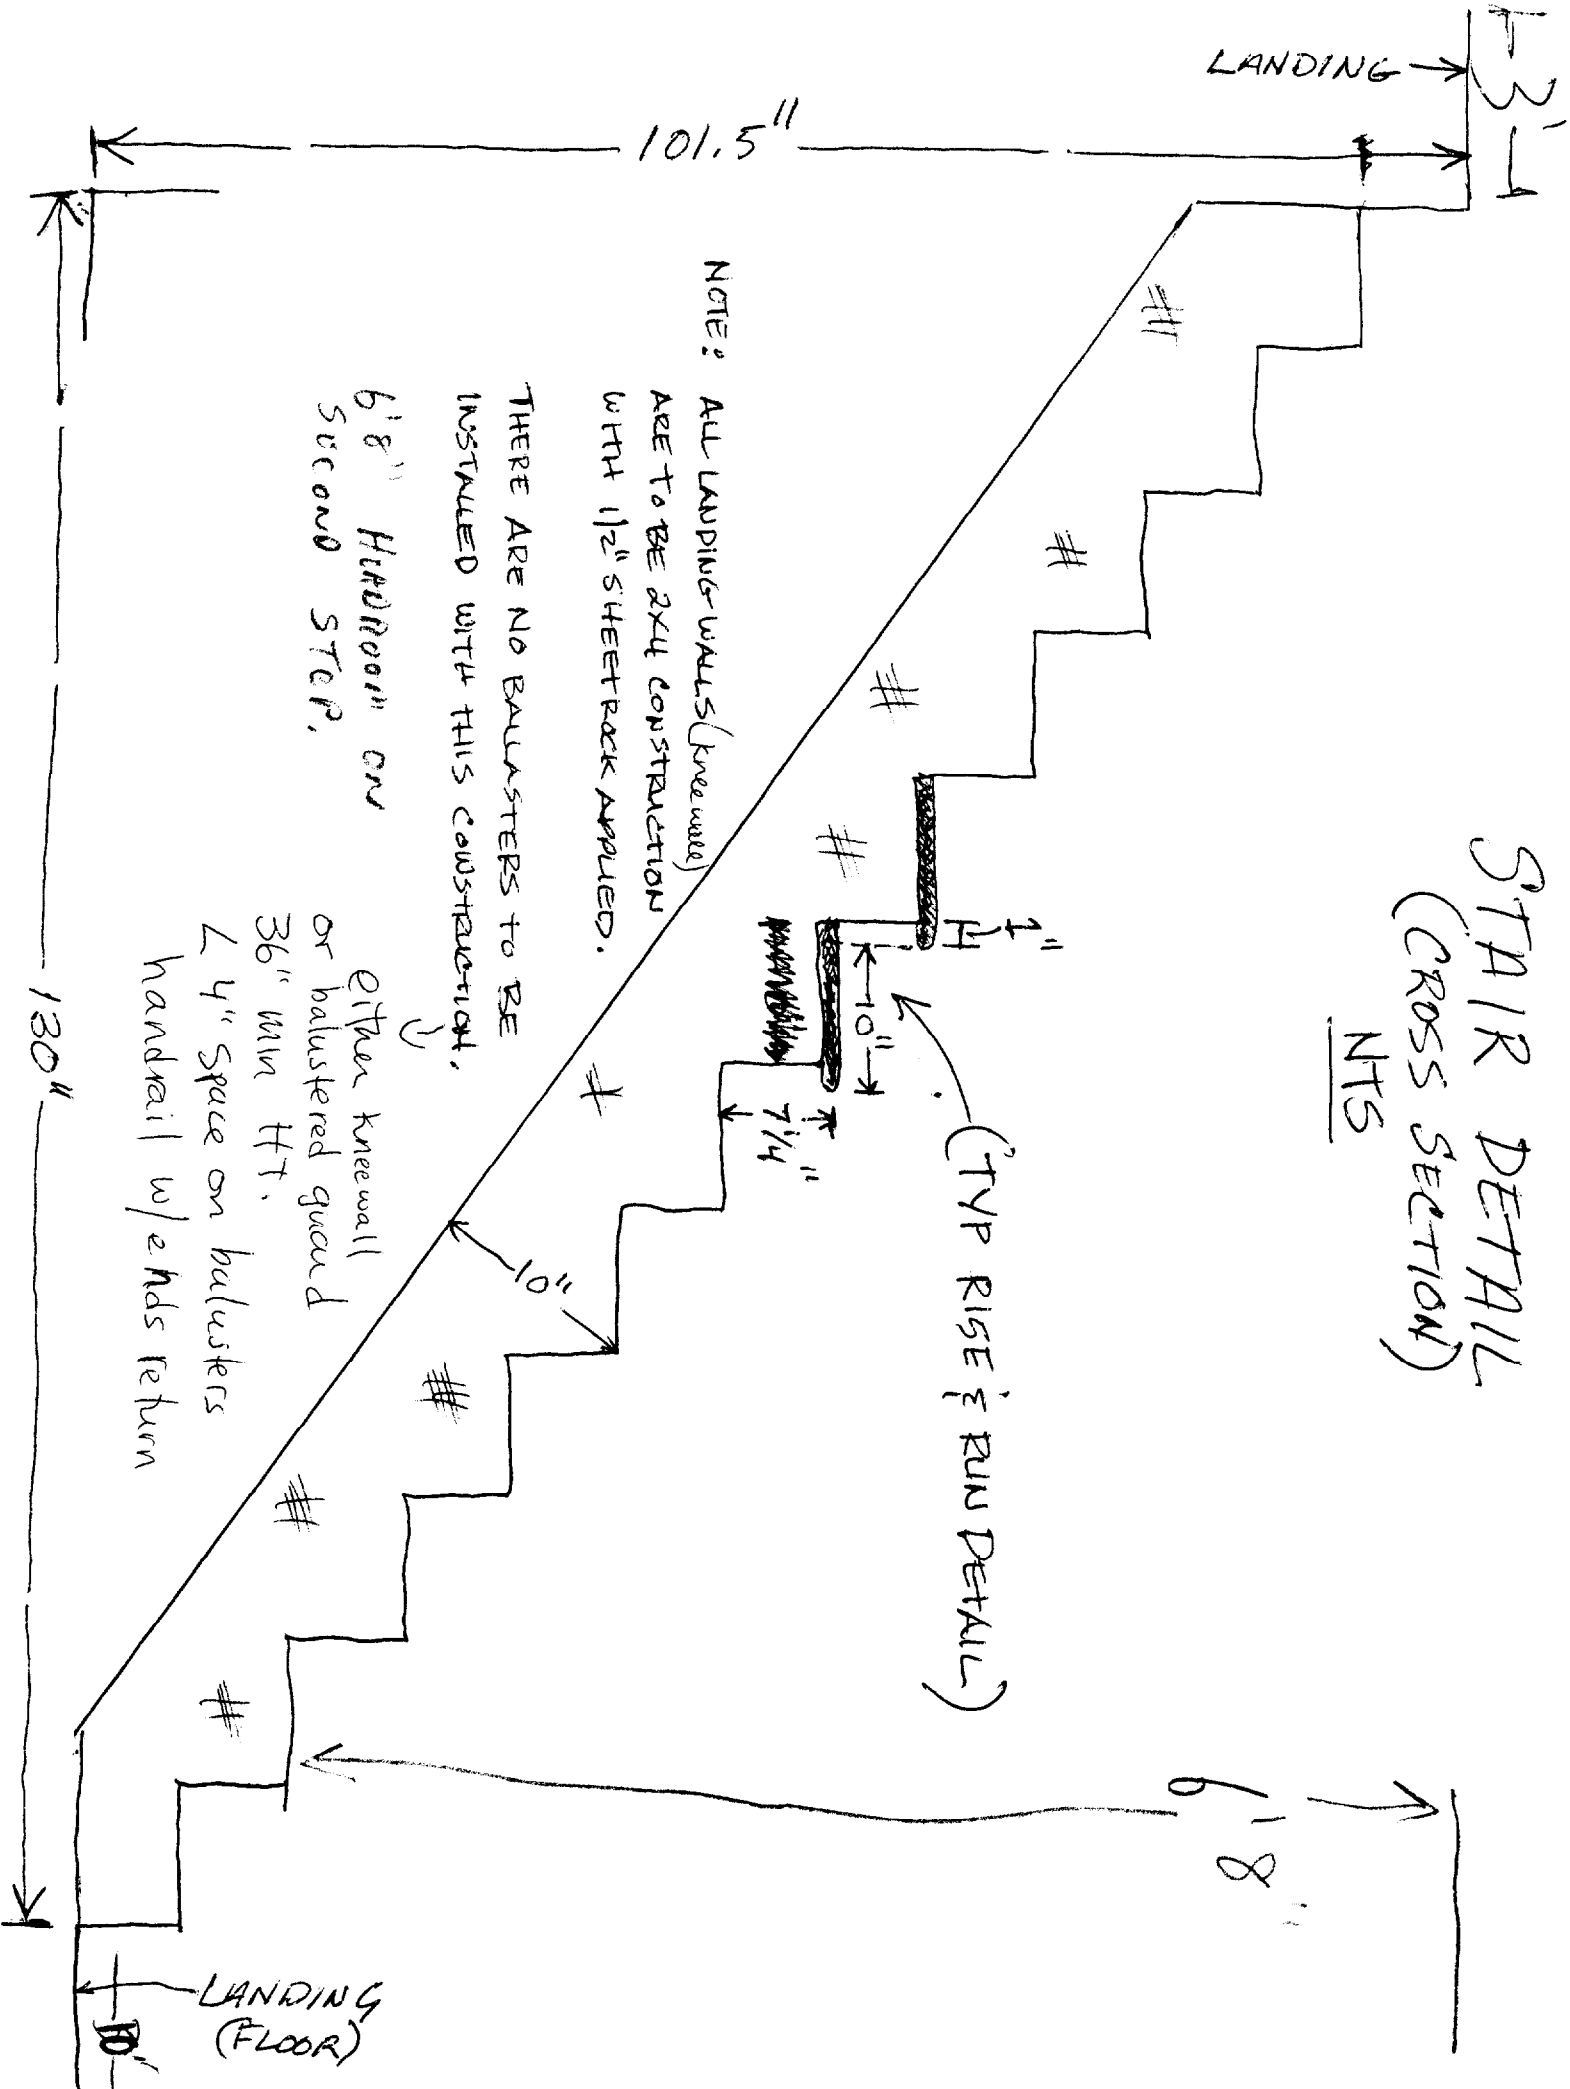 STAIR DETAIL
(CROSS SECTION)
NTS
3'
LANDING
101.5"
1"
10"
7 1/4"
(TYP RISE & RUN DETAIL)
6'8"
10"
NOTE: ALL LANDING WALLS (knee wall)
ARE TO BE 2X4 CONSTRUCTION
WITH 1/2" SHEETROCK APPLIED.
THERE ARE NO BALLASTERS TO BE
INSTALLED WITH THIS CONSTRUCTION.
6'8" HEADROOM ON
SECOND STEP.
either kneewall
or balustered guard
36" min HT.
< 4" space on balusters
handrail w/ ends return
130"
LANDING
(FLOOR)